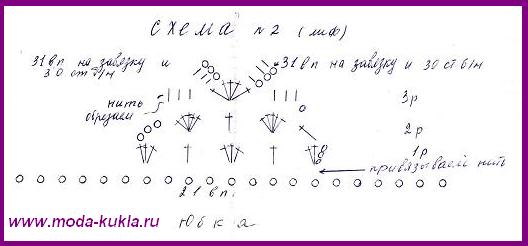 схема №2 (лиф)
31вп на завязку и
30 ст б/н
31вп на завязку и 30 ст б/н
нить
обрезаем
3р
2р
1р
привязываем нить
21 вп.
Юбка
www.moda-kukla.ru